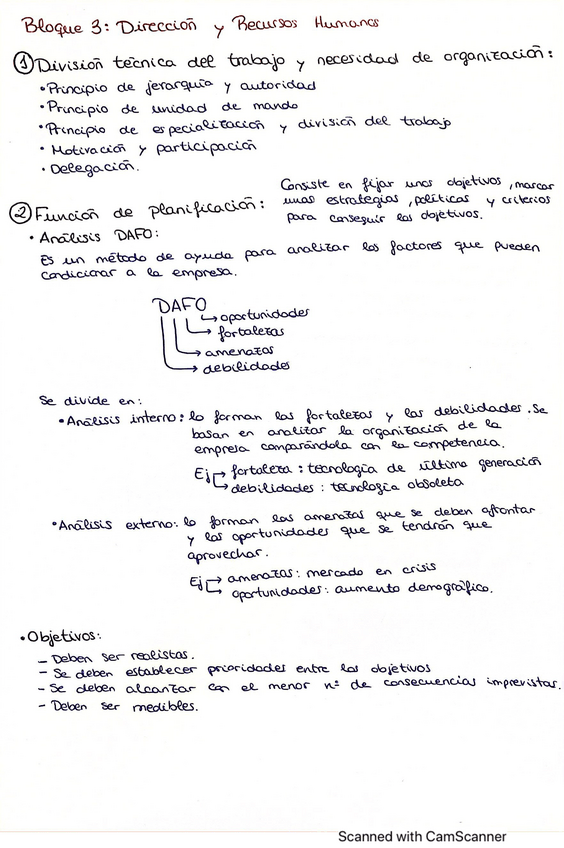 Bloque 3: Dirección y Recursos Humanos
① División técnica del trabajo y necesidad de organización:
• Principio de jerarquía y autoridad
• Principio de unidad de mando
• Principio de especialización y división del trabajo
• Motivación y participación
• Delegación.
② Función de planificación: Consiste en fijar unos objetivos, marcar
unas estrategias, políticas y criterios
para conseguir los objetivos.
• Análisis DAFO:
Es un método de ayuda para analizar los factores que pueden
condicionar a la empresa.
DAFO
→ oportunidades
→ fortalezas
→ amenazas
→ debilidades
Se divide en:
• Análisis interno: lo forman las fortalezas y las debilidades. Se
basan en analizar la organización de la
empresa comparándola con la competencia.
Ej → fortaleza: tecnología de última generación
→ debilidades: tecnología obsoleta
• Análisis externo: lo forman las amenazas que se deben afrontar
y las oportunidades que se tendrán que
aprovechar.
Ej → amenazas: mercado en crisis
→ oportunidades: aumento demográfico.
• Objetivos:
- Deben ser realistas.
- Se deben establecer prioridades entre los objetivos
- Se deben alcanzar con el menor nº de consecuencias imprevistas.
- Deben ser medibles.
Scanned with CamScanner